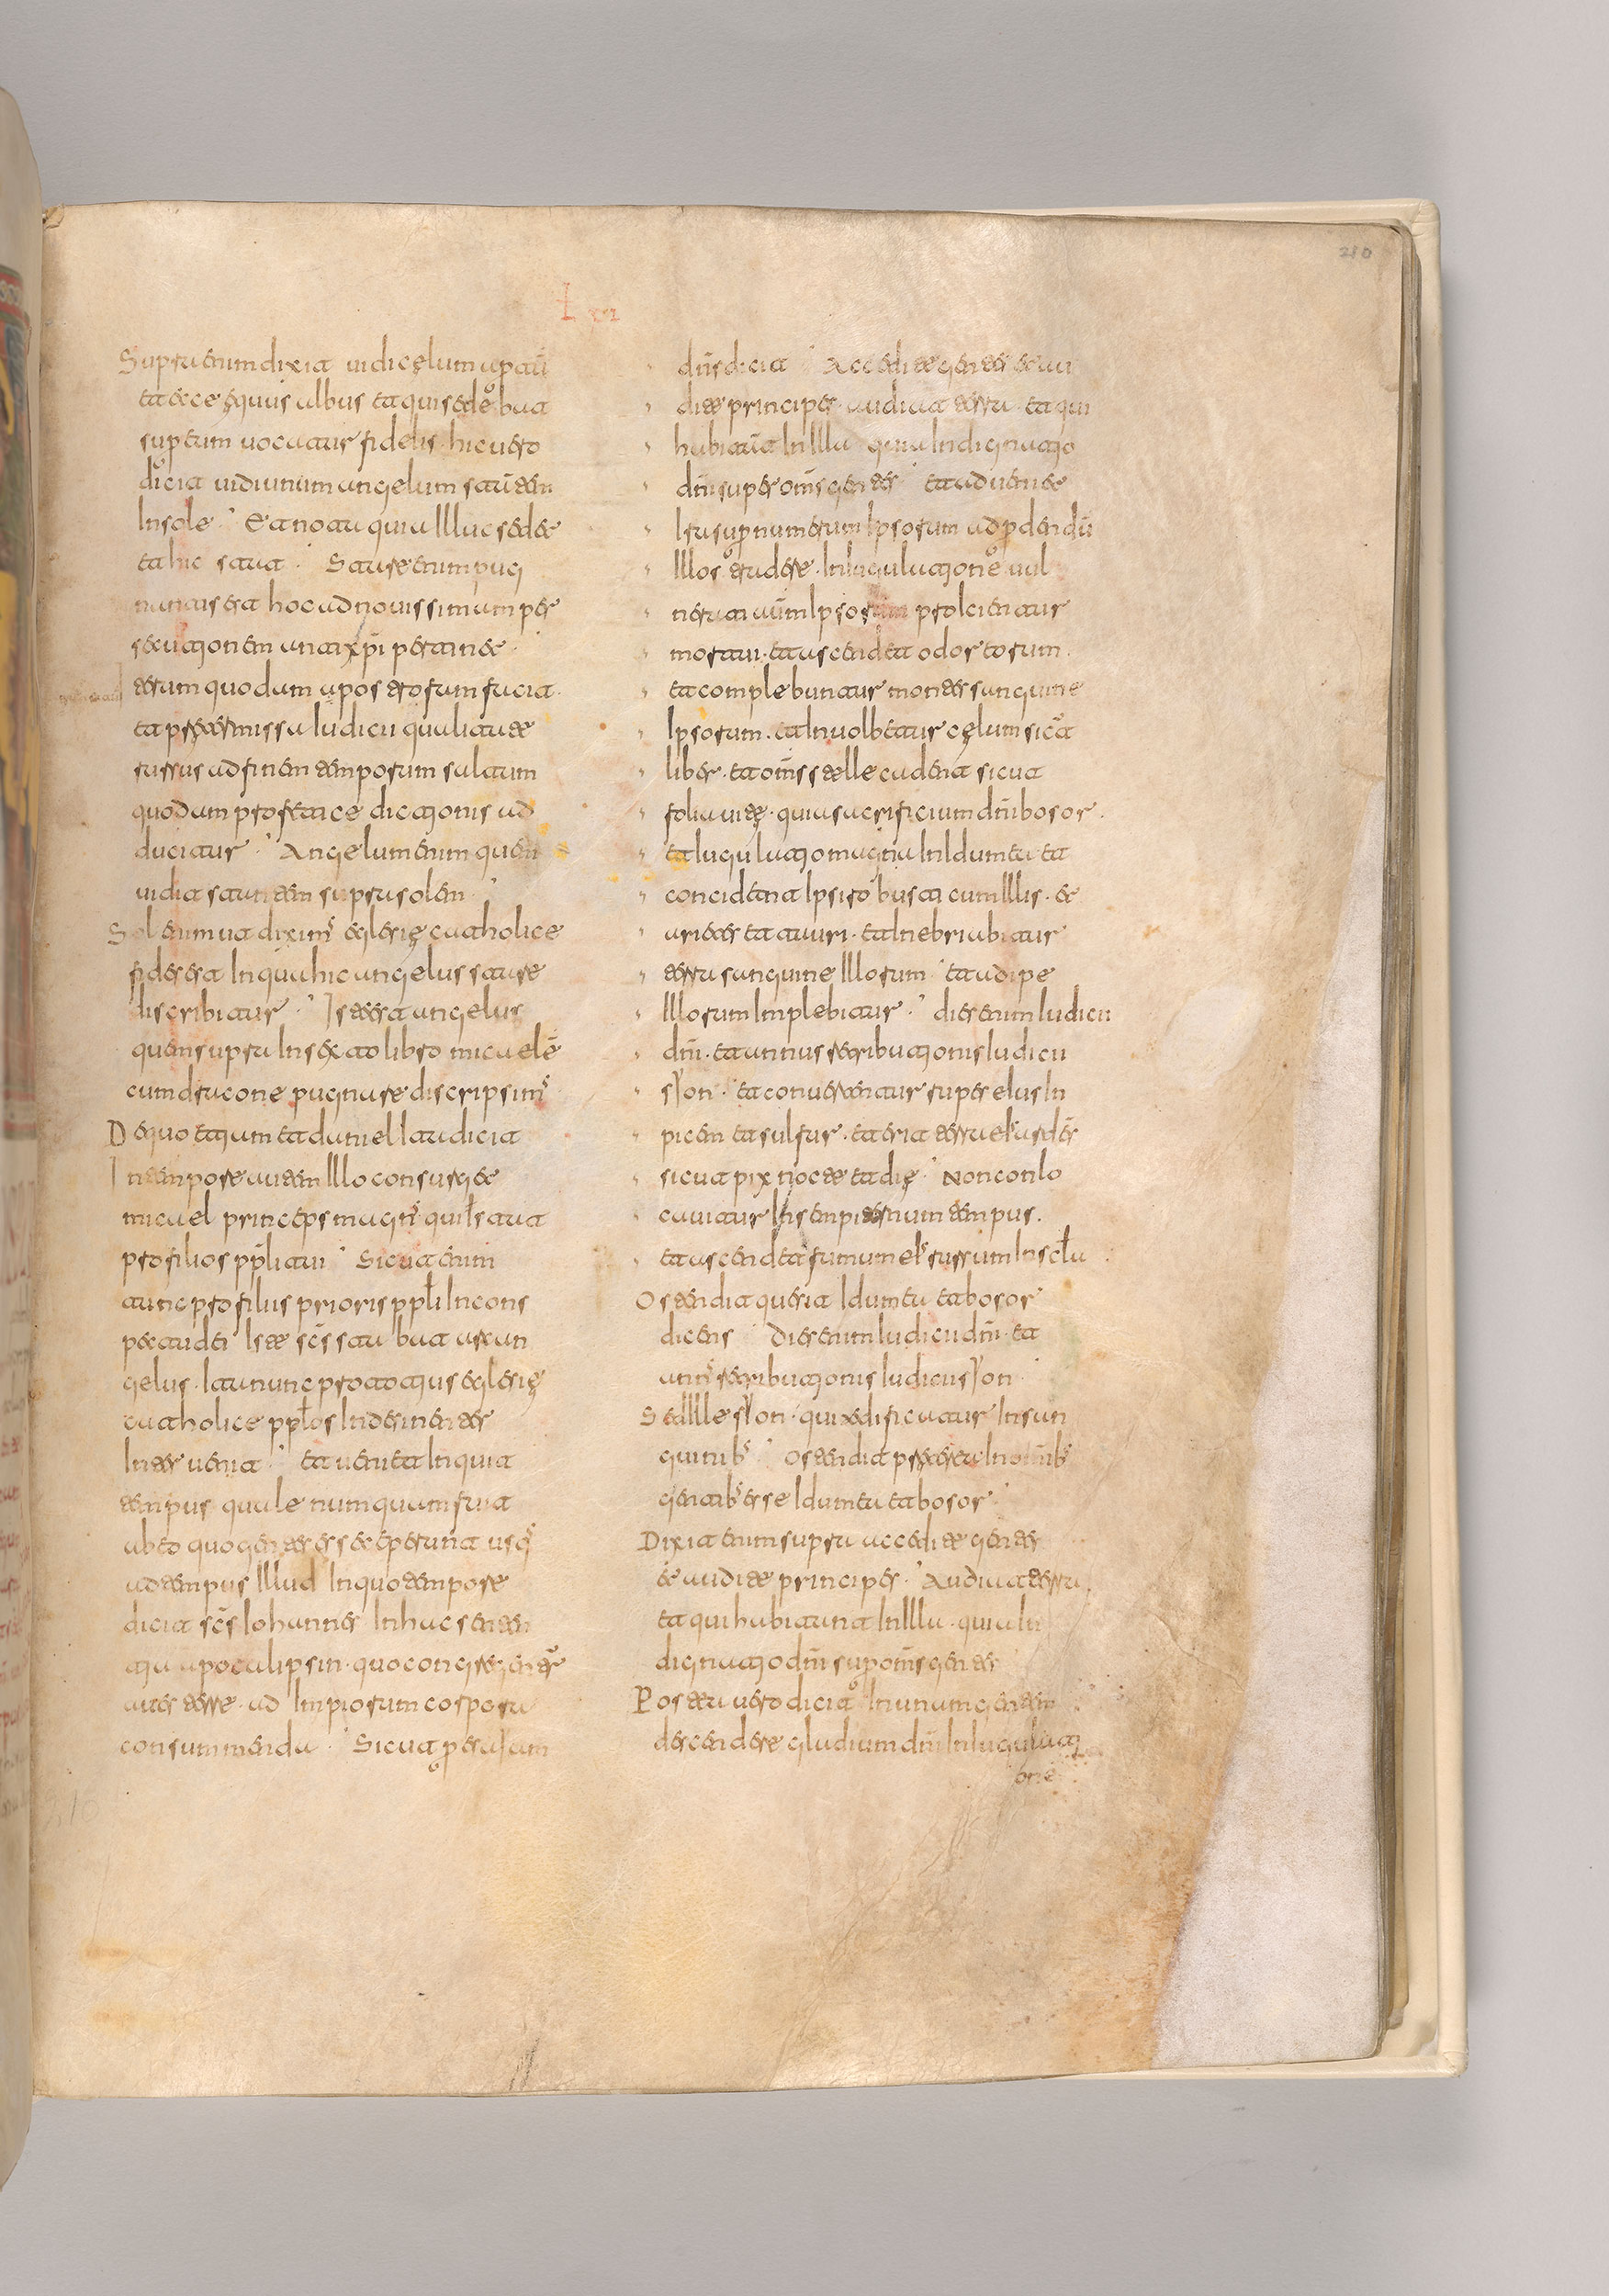 210
Lxi
Supra enim dixit uidi cęlum aptū
et ecce ęquus albus et qui sedebat
sup eum uocatur fidelis · hic uero
dicit uidi unum angelum stāntem
In sole · Et notat quia Illuc sedet
et hic stat · Stare enim pug
nantis est hoc ad nouissimam per
secutionem antixp̄i pertinet ·
Iterum quodam aposterorum facta
et pretermissa Iudicii qualitate
rursus ad finem temporum saltum
quodam profetice dictionis ad
ducitur · Angelum enim quem
uidit stantem supra solem ·
Solem ut diximˢ eglesię catholice
fides est In qua hic angelus stare
discribitur · Iste est angelus
quem supra In sexto libro micaelē
cum dracone pugnare discripsimˢ
De quo etiam et daniel Ita dicit
In tempore autem Illo consurget
micael princeps magnˢ qui stat
pro filios pp̄li tui · Sicut enim
tunc pro filius prioris pp̄li In cons
pectu dei Iste sc̄s stabat arcan
gelus · Ita nunc pro totius eglesię
catholice pp̄los In des Inentes
Inter uenit · et uenit Inquit
tempus quale numquam fuit
ab eo quo gentes esse ceperunt usqˢ
ad tempus Illud In quo tempore
dicit sc̄s Iohannes In hac senten
tia apocalipsin · quo congregentur
aues terre · ad Impiorum corpora
consummenda · Sicut p esaiam
dn̄s dicit · Accedite gentes et au
dite principes · audiat terra · et qui
habitant In Illa quia Indignatio
dn̄i super oms̄ gentes · et aduenet
Ira sup numerum Ipsorum ad pdendū
Illos tradere · In Iugulatione uul
nerati autem Ipsorum proIcientur
mortui · et ascendet odor eorum ·
et complebuntur montes sanguine
Ipsorum · et Inuolbetur cęlum sicut
liber · et oms̄ stelle cadent sicut
folia uitę · quia sacrificium dn̄i bosor ·
et Iugulatio magna In Idumea et
concident Ipsi robusti cum Illis · et
arietes et tauri · et Inebriabitur
terra sanguine Illorum · et adipe
Illorum Implebitur · dies enim Iudicii
dn̄i · et annus retributionis Iudicii
sīon · et conuertentur super eius In
picem et sulfur · et erit terra eius ardes
sicut pix nocte et dię · Non conlo
cauitur In sempiternum tempus ·
et ascendet fumum eiˢ sursum In scl̄a
Ostendit que sit Idumea et bosor
dicens dies enim Iudicii dn̄i · et
annˢ retributionis Iudicii sīon ·
Sed Ille sīon · qui edificatur In san
guinibˢ · Ostendit preterea In omnibˢ
gentibˢ esse Idumea et bosor ·
Dixit enim supra accedite gentes
et audite principes · Audiat terra
et qui habitant In Illa · quia In
dignatio dn̄i sup oms̄ gentes
Postea uero dicit In unum gentem
descendere gladium dn̄i In Iugulati
one